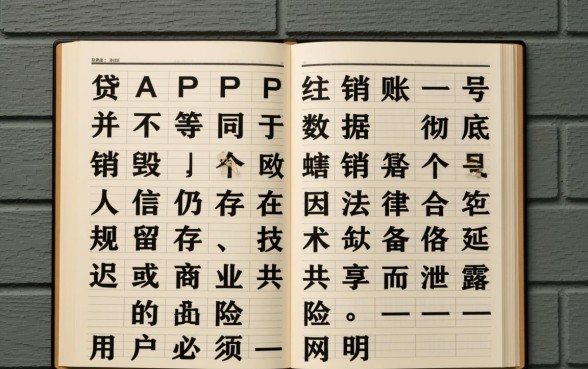 贷 A P P P 销 账 一 号
并 不 等 同 于 数 据 彻 底
销 毁 个 欧 销 个
人 信 仍 存 在 因 法 律 合
规 留 存 、 技 术 备 延
迟 或 商 业 共 共 享 而 泄 露
的 险 险 。 — — —
用 户 必 须 一 网 明